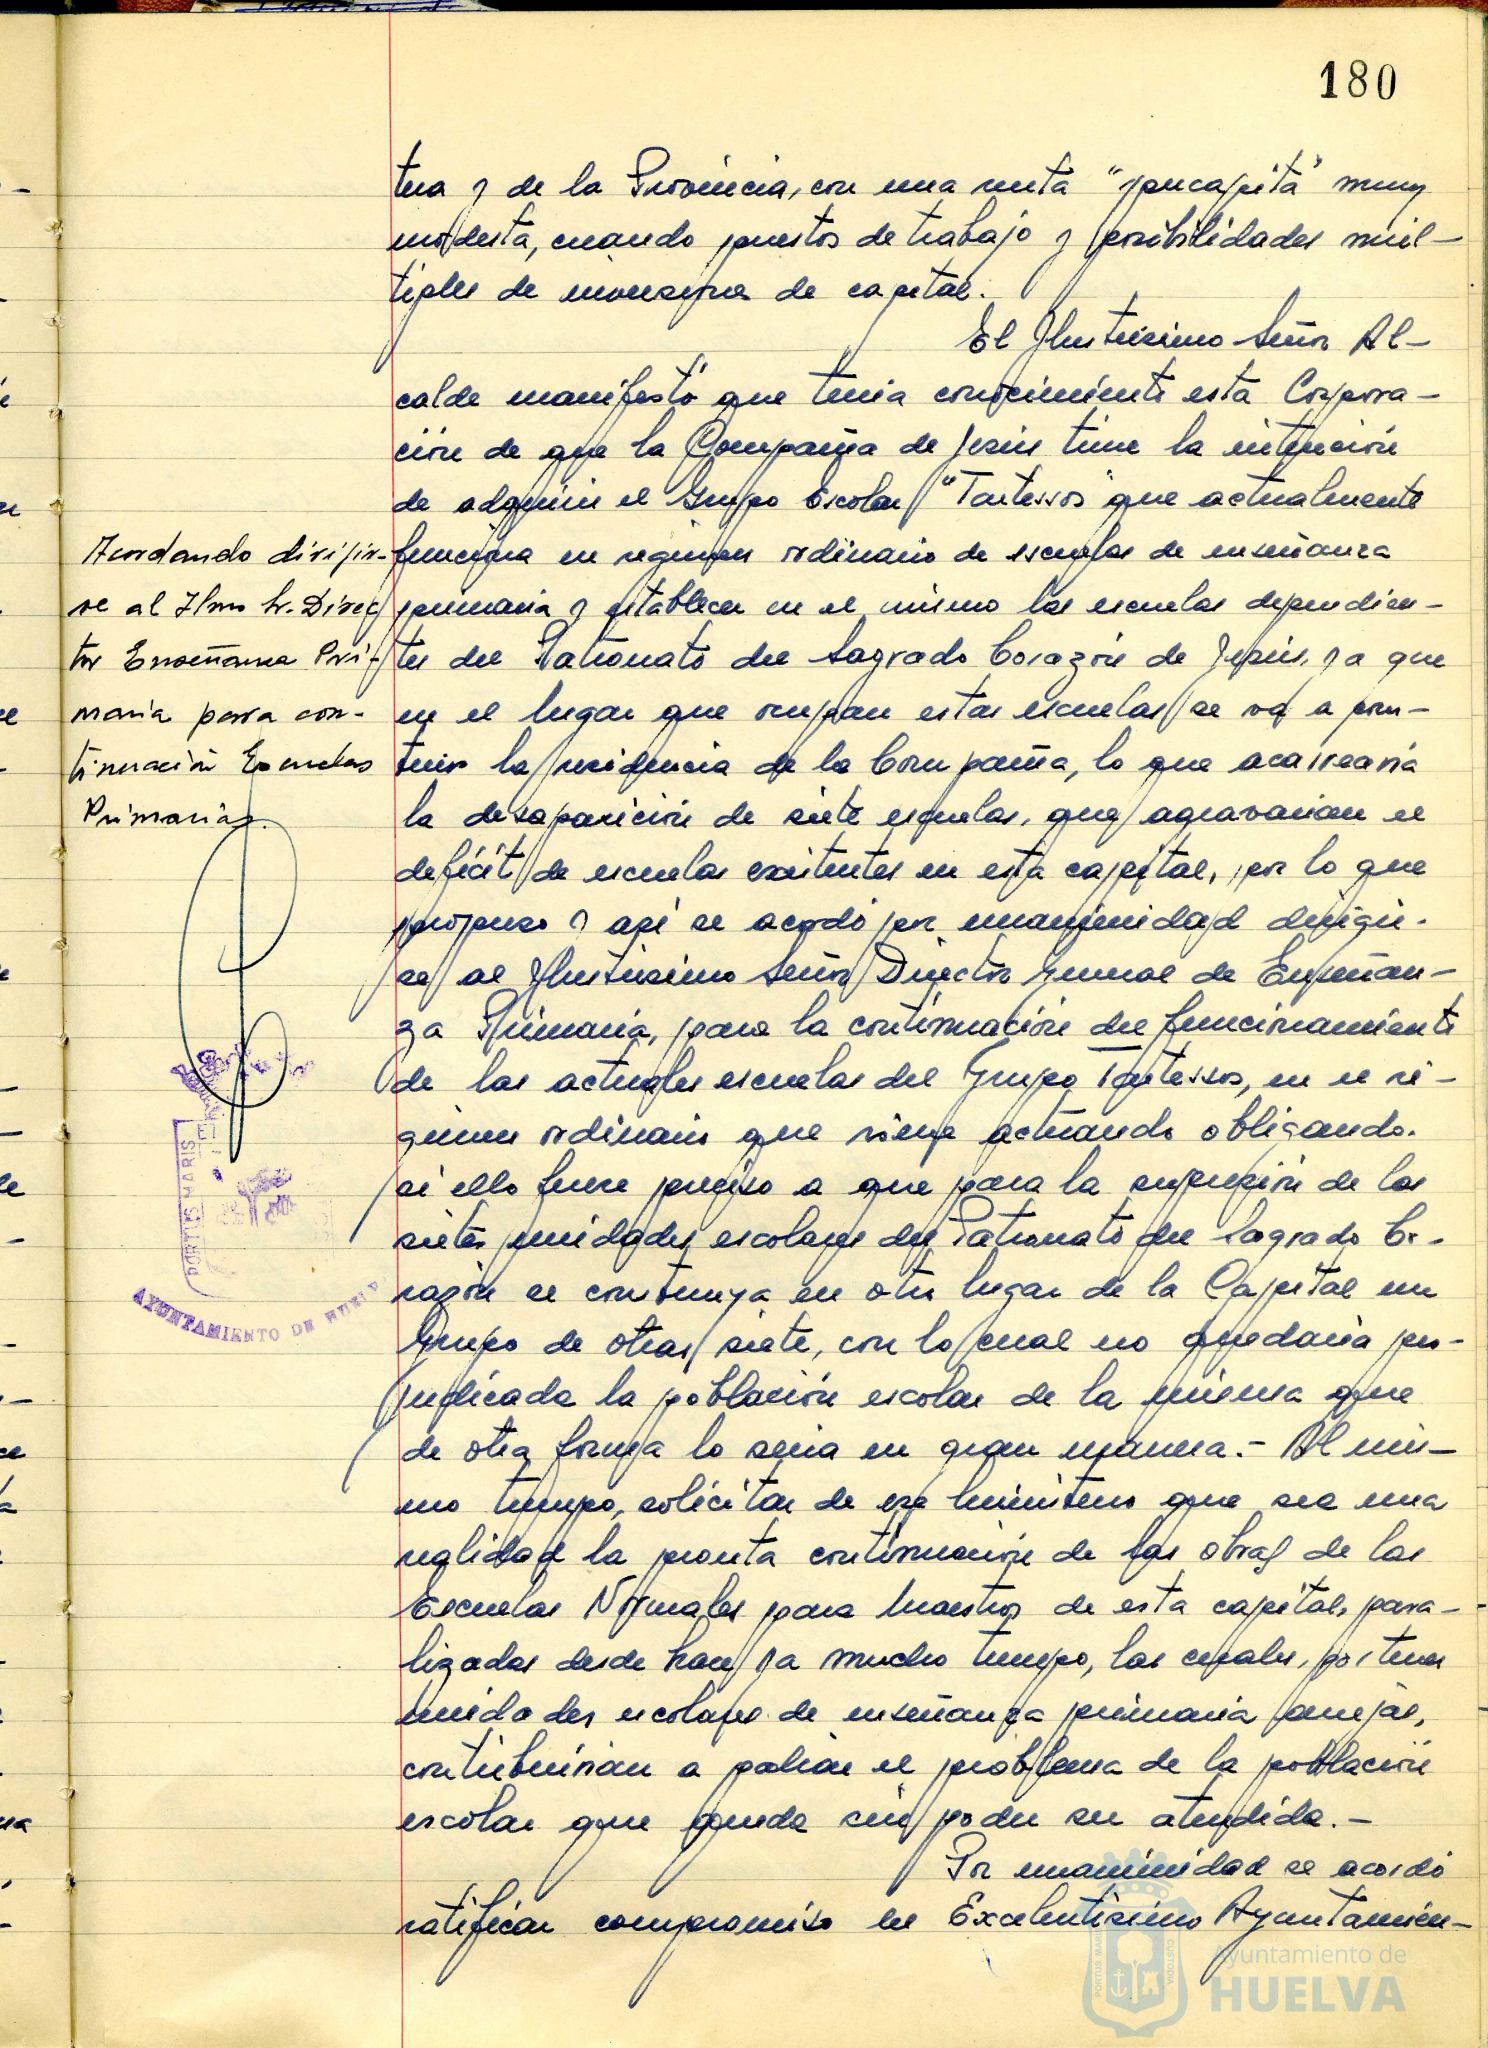 180
tura y de la Provincia, con una renta "percapita" muy
modesta, creando puestos de trabajo y posibilidades múl-
tiples de inversiones de capital.
El Ilustrisimo Señor Al-
calde manifestó que tenia conocimiento esta Corpora-
ción de que la Compañia de Jesús tiene la intención
de adquirir el Grupo Escolar "Tartessos" que actualmente
funciona en regimen ordinario de escuelas de enseñanza
primaria y establecer en el mismo las escuelas dependien-
tes del Patronato del Sagrado Corazón de Jesús, ya que
en el lugar que ocupan estas escuelas se va a cons-
truir la residencia de la Compañia, lo que acarrearia
la desaparición de siete escuelas, que agravarian el
deficit de escuelas existentes en esta capital, por lo que
propuso y asi se acordó por unanimidad dirigir-
se al Ilustrisimo Señor Director General de Enseñan-
za Primaria, para la continuación del funcionamiento
de las actuales escuelas del Grupo Tartessos, en el ré-
gimen ordinario que viene actuando obligando.
si ello fuere preciso a que para la supresión de las
siete unidades escolares del Patronato del Sagrado Co-
razón se construya en otro lugar de la Capital un
Grupo de otras siete, con lo cual no quedaria per-
judicada la población escolar de la misma que
de otra forma lo seria en gran manera.- Al mis-
mo tiempo, solicitar de ese Ministerio que sea una
realidad la pronta continuación de las obras de las
Escuelas Normales para Maestros de esta capital, para-
lizadas desde hace ya mucho tiempo, las cuales, por tener
Unidades escolares de enseñanza primaria anejas,
contribuirian a paliar el problema de la población
escolar que queda sin poder ser atendida.-
Por unanimidad se acordó
ratificar compromiso del Excelentisimo Ayuntamien-
Acordando dirijir-
se al Ilmo Sr. Direc
tor Enseñanza Pri-
maria para con-
tinuación Escuelas
Primarias.
PORTUS MARIS
AYUNTAMIENTO DE HUELVA
PORTUS MARIS
CUSTODIA
Ayuntamiento de
HUELVA